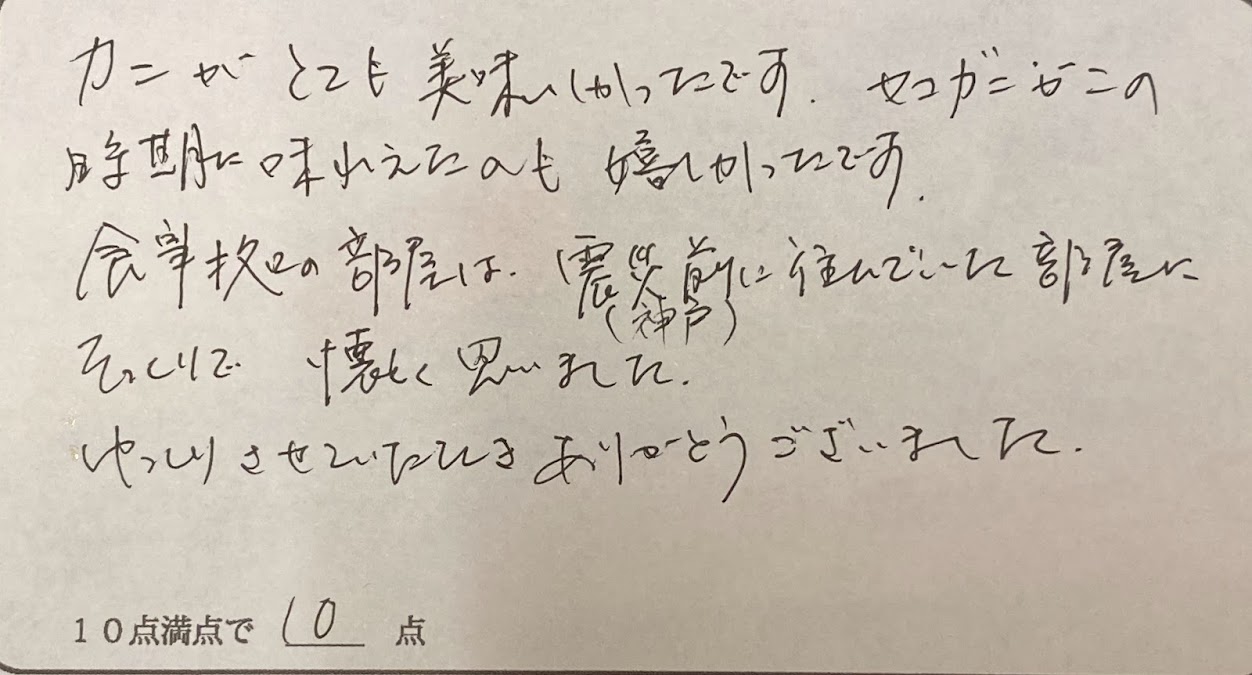 カニがとても美味しかったです. セコガニがこの
時期に味わえたのも嬉しかったです.
食事処の部屋は. 震災前に住んでいた部屋に
(神戸)
そっくりで 懐しく思いました.
ゆっくりさせていただき ありがとうございました.
10点満点で 10 点